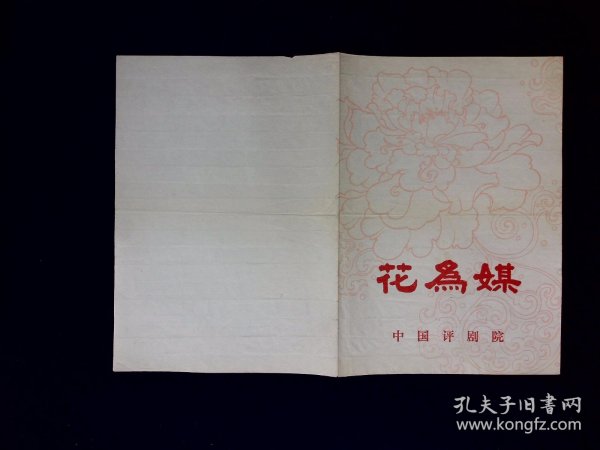 花為媒
中国评剧院
孔夫子旧書网
www.kongfz.com